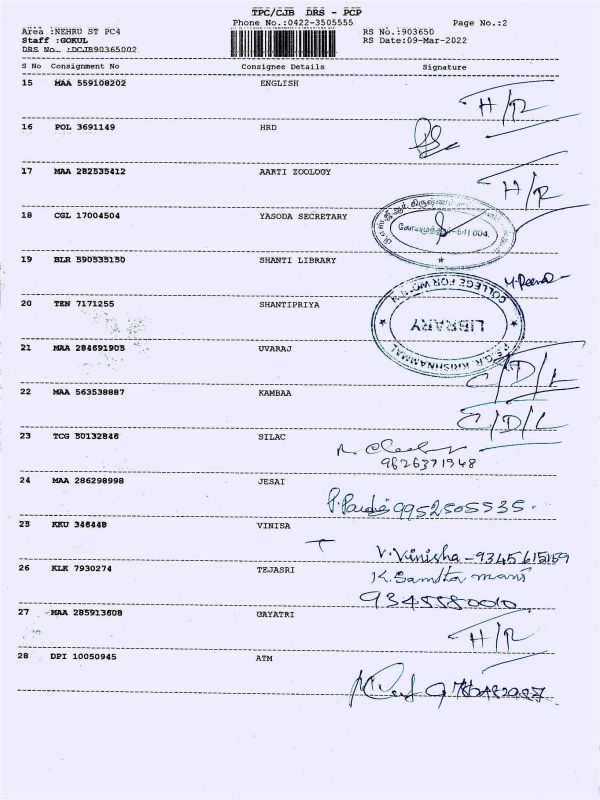 TPC/CJB DRS - PCP
Phone No.:0422-3505555 Page No.:2
Area :NEHRU ST PC4 RS No.:903650
Staff :GOKUL RS Date:09-Mar-2022
DRS No. :DCJB90365002
S No Consignment No Consignee Details Signature
15 MAA 559108202 ENGLISH H/R
16 POL 3691149 HRD
17 MAA 282535412 AARTI ZOOLOGY H/R
18 CGL 17004504 YASODA SECRETARY
19 BLR 590535150 SHANTI LIBRARY
COLLEGE FOR WOMEN
LIBRARY
KRISHNAMMAL
20 TEN 7171255 SHANTIPRIYA
21 MAA 284691903 UVARAJ C/D/L
22 MAA 563538887 KAMBAA C/D/L
23 TCG 30132846 SILAC
9626371948
24 MAA 286298998 JESAI 9952505535
25 KKU 346448 VINISA
V.Vinisha-9345615159
26 KLK 7930274 TEJASRI
27 MAA 285913608 GAYATRI H/R
28 DPI 10050945 ATM